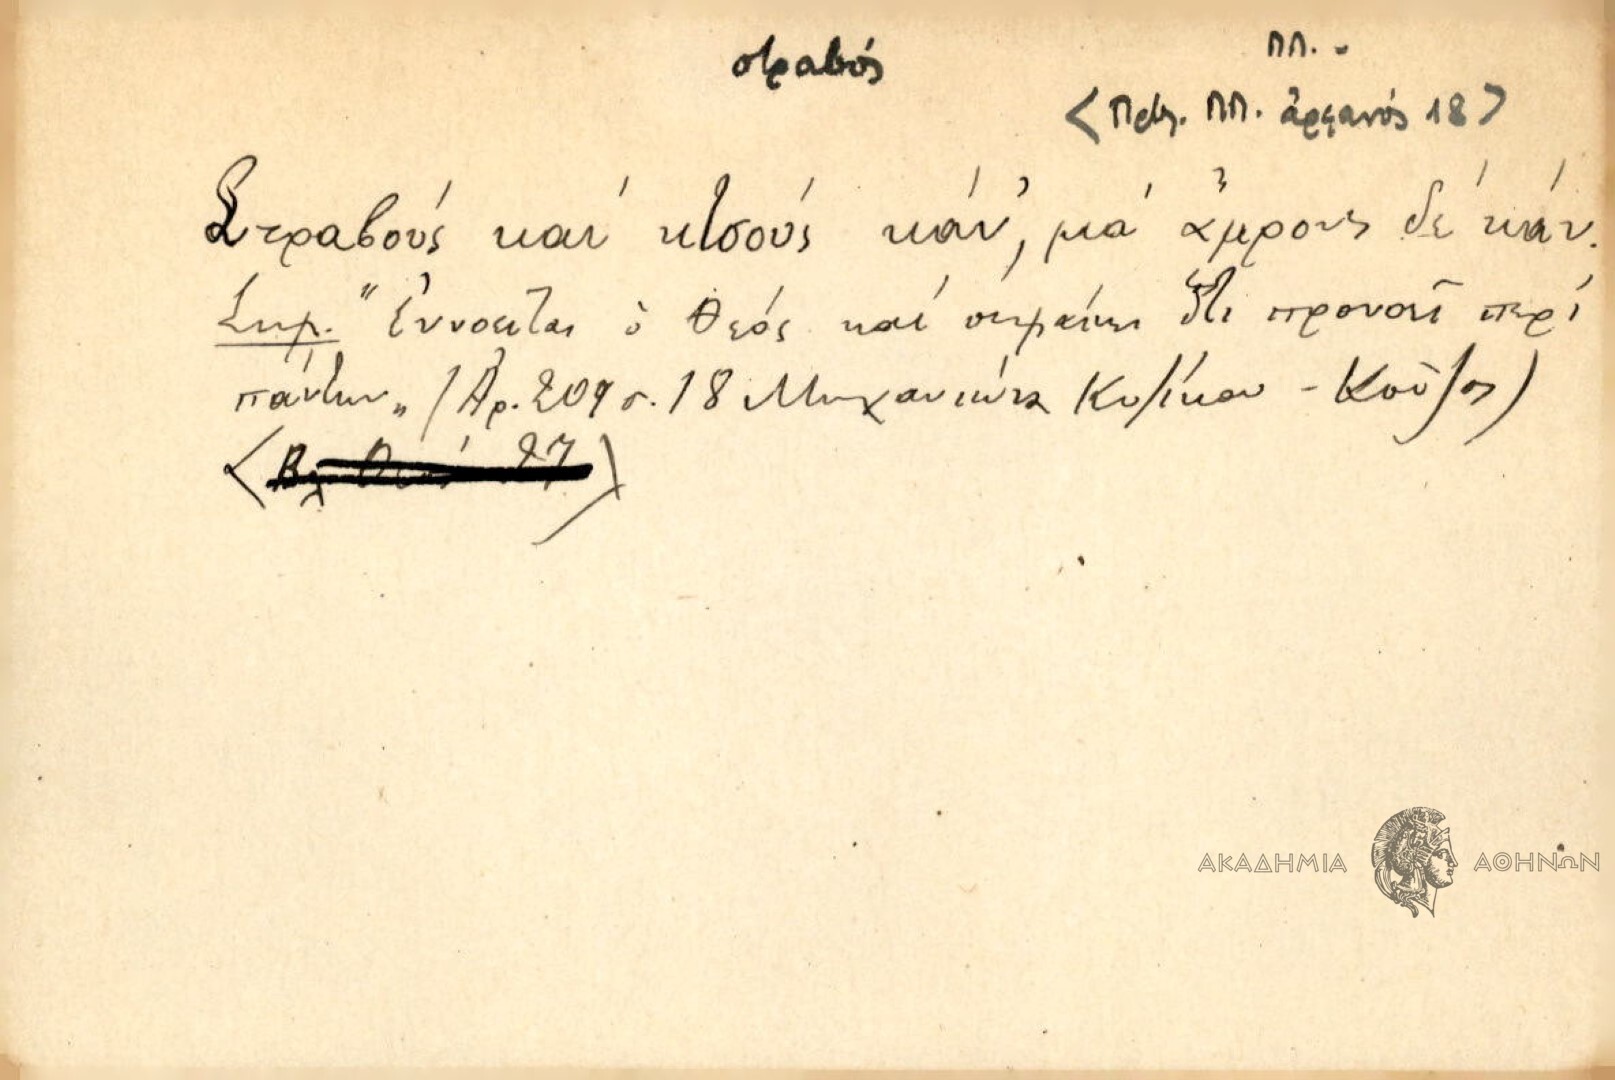 στραβός
ΠΠ. -
<Πρβ. ΠΠ. ὀρφανός 18>
Στραβούς καί κτσούς κάν', μά ἄμροιυς δέ κάν.
Σημ. "Ἐννοεῖται ὁ Θεός καί σημαίνει ὅτι προνοεῖ περί
πάντων" (Ἀρ. 209 σ. 18 Μηχανιώνα Κυζίκου - Κούζος)
<Βλ. Θεός 27>
ΑΚΑΔΗΜΙΑ ΑΘΗΝΩΝ